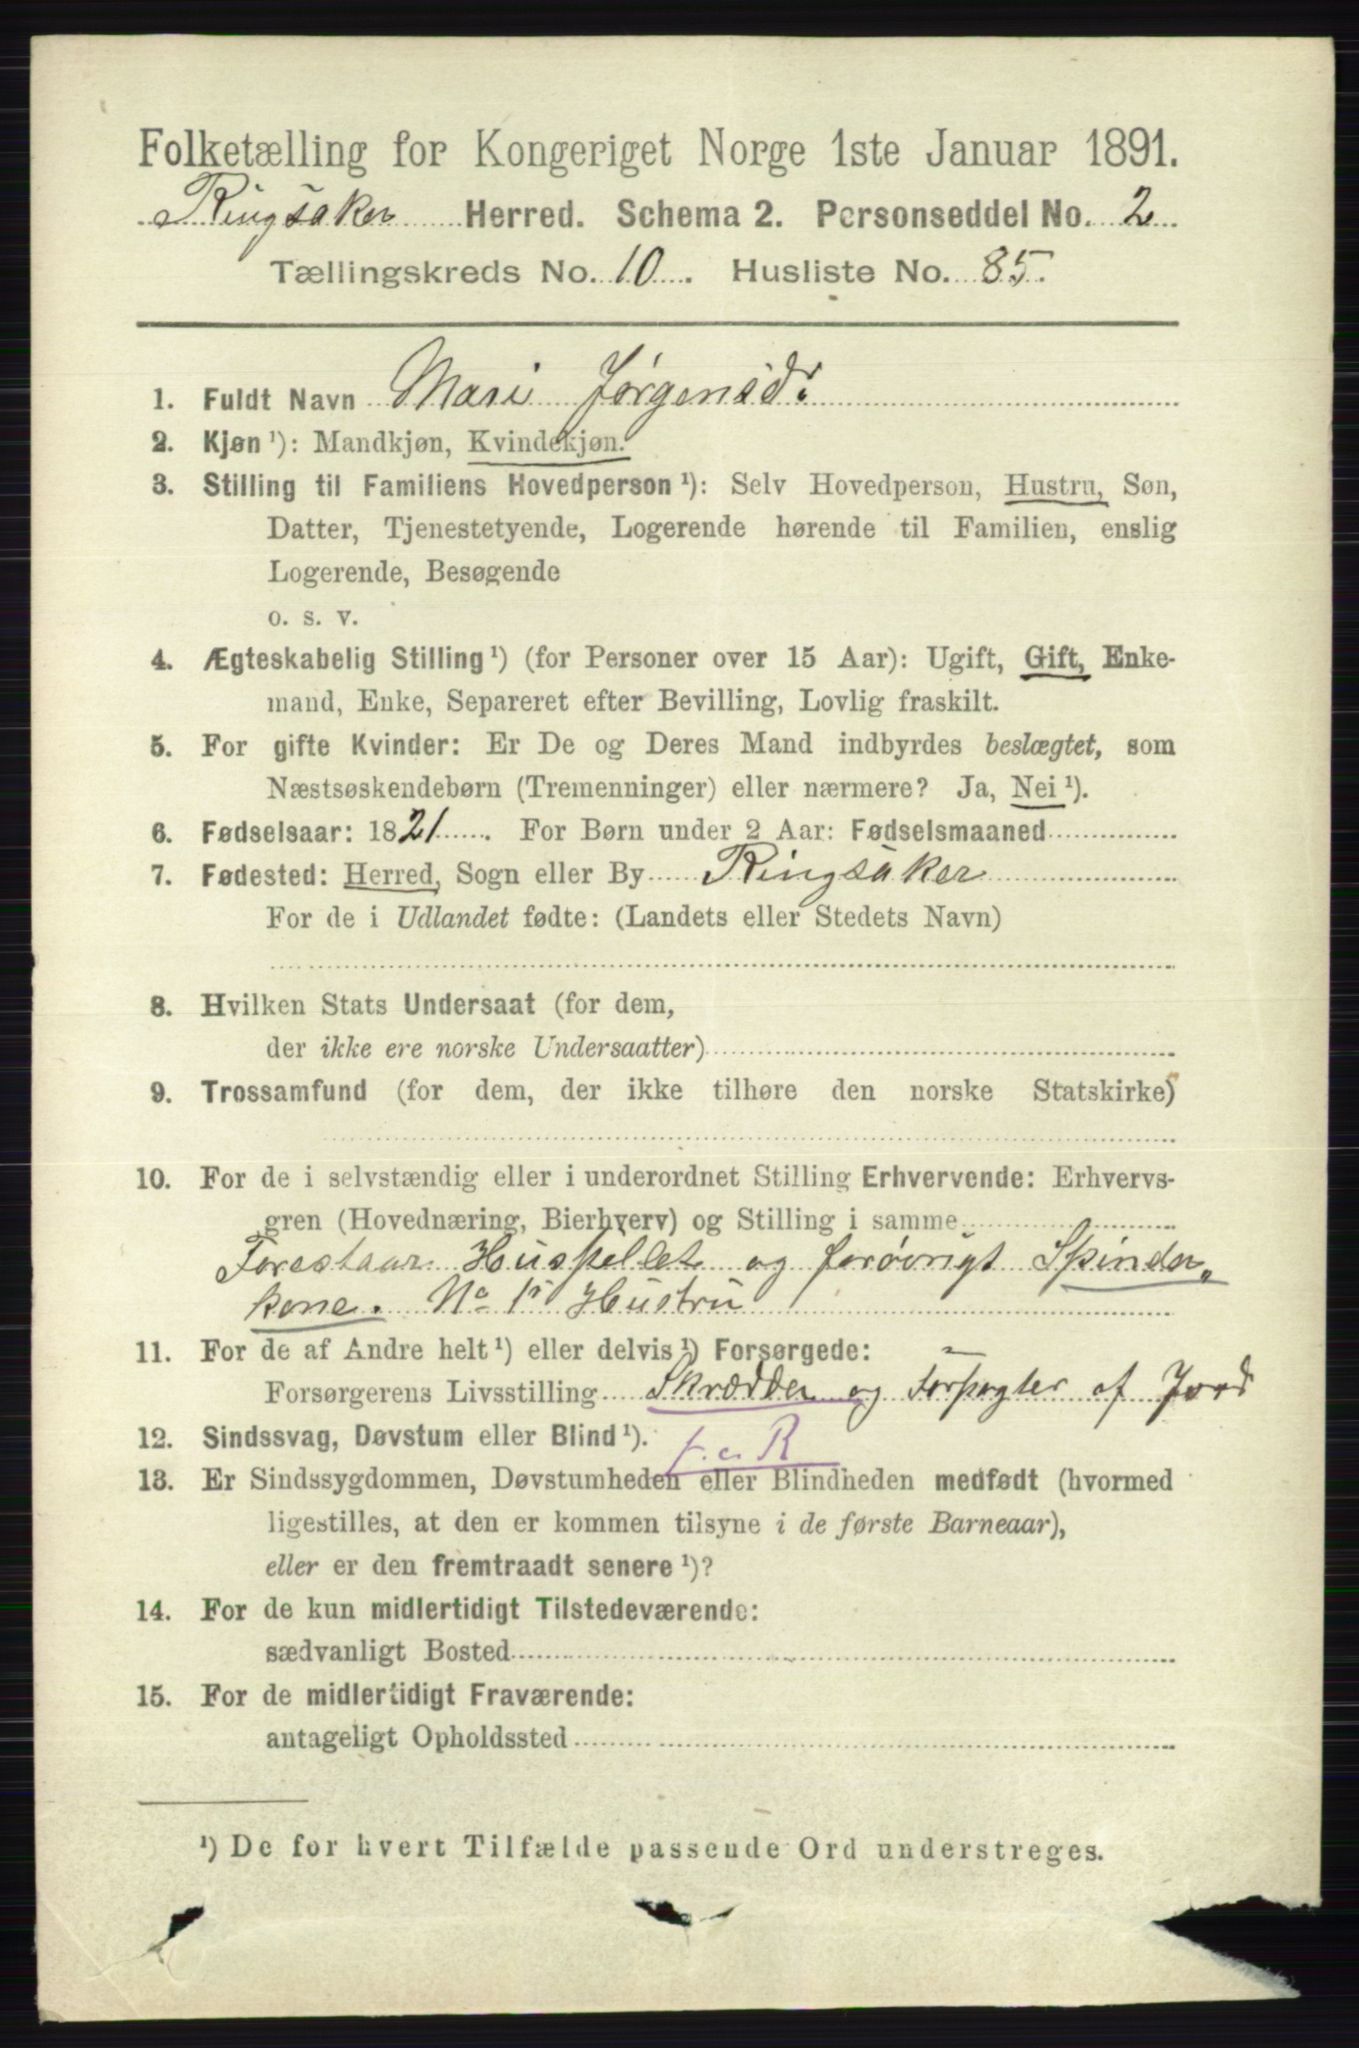 Folketælling for Kongeriget Norge 1ste Januar 1891.
Ringsaker Herred. Schema 2. Personseddel No. 2
Tællingskreds No. 10. Husliste No. 85.
1. Fuldt Navn Mari Jørgensdr.
2. Kjøn ¹): Mandkjøn, Kvindekjøn.
3. Stilling til Familiens Hovedperson ¹): Selv Hovedperson, Hustru, Søn,
Datter, Tjenestetyende, Logerende hørende til Familien, enslig
Logerende, Besøgende
o. s. v.
4. Ægteskabelig Stilling ¹) (for Personer over 15 Aar): Ugift, Gift, Enke-
mand, Enke, Separeret efter Bevilling, Lovlig fraskilt.
5. For gifte Kvinder: Er De og Deres Mand indbyrdes beslægtet, som
Næstsøskendebørn (Tremenninger) eller nærmere? Ja, Nei ¹).
6. Fødselsaar: 1821. For Børn under 2 Aar: Fødselsmaaned
7. Fødested: Herred, Sogn eller By Ringsaker
For de i Udlandet fødte: (Landets eller Stedets Navn)
8. Hvilken Stats Undersaat (for dem,
der ikke ere norske Undersaatter)
9. Trossamfund (for dem, der ikke tilhøre den norske Statskirke)
10. For de i selvstændig eller i underordnet Stilling Erhvervende: Erhvervs-
gren (Hovednæring, Bierhverv) og Stilling i samme
Forestaar Husstellet og forøvrigt Spinder„
kone. No 1s Hustru
11. For de af Andre helt ¹) eller delvis ¹) Forsørgede:
Forsørgerens Livsstilling Skrædder og Forpagter af Jord
12. Sindssvag, Døvstum eller Blind ¹).
13. Er Sindssygdommen, Døvstumheden eller Blindheden medfødt (hvormed
ligestilles, at den er kommen tilsyne i de første Barneaar),
eller er den fremtraadt senere ¹)?
14. For de kun midlertidigt Tilstedeværende:
sædvanligt Bosted
15. For de midlertidigt Fraværende:
antageligt Opholdssted
¹) De for hvert Tilfælde passende Ord understreges.